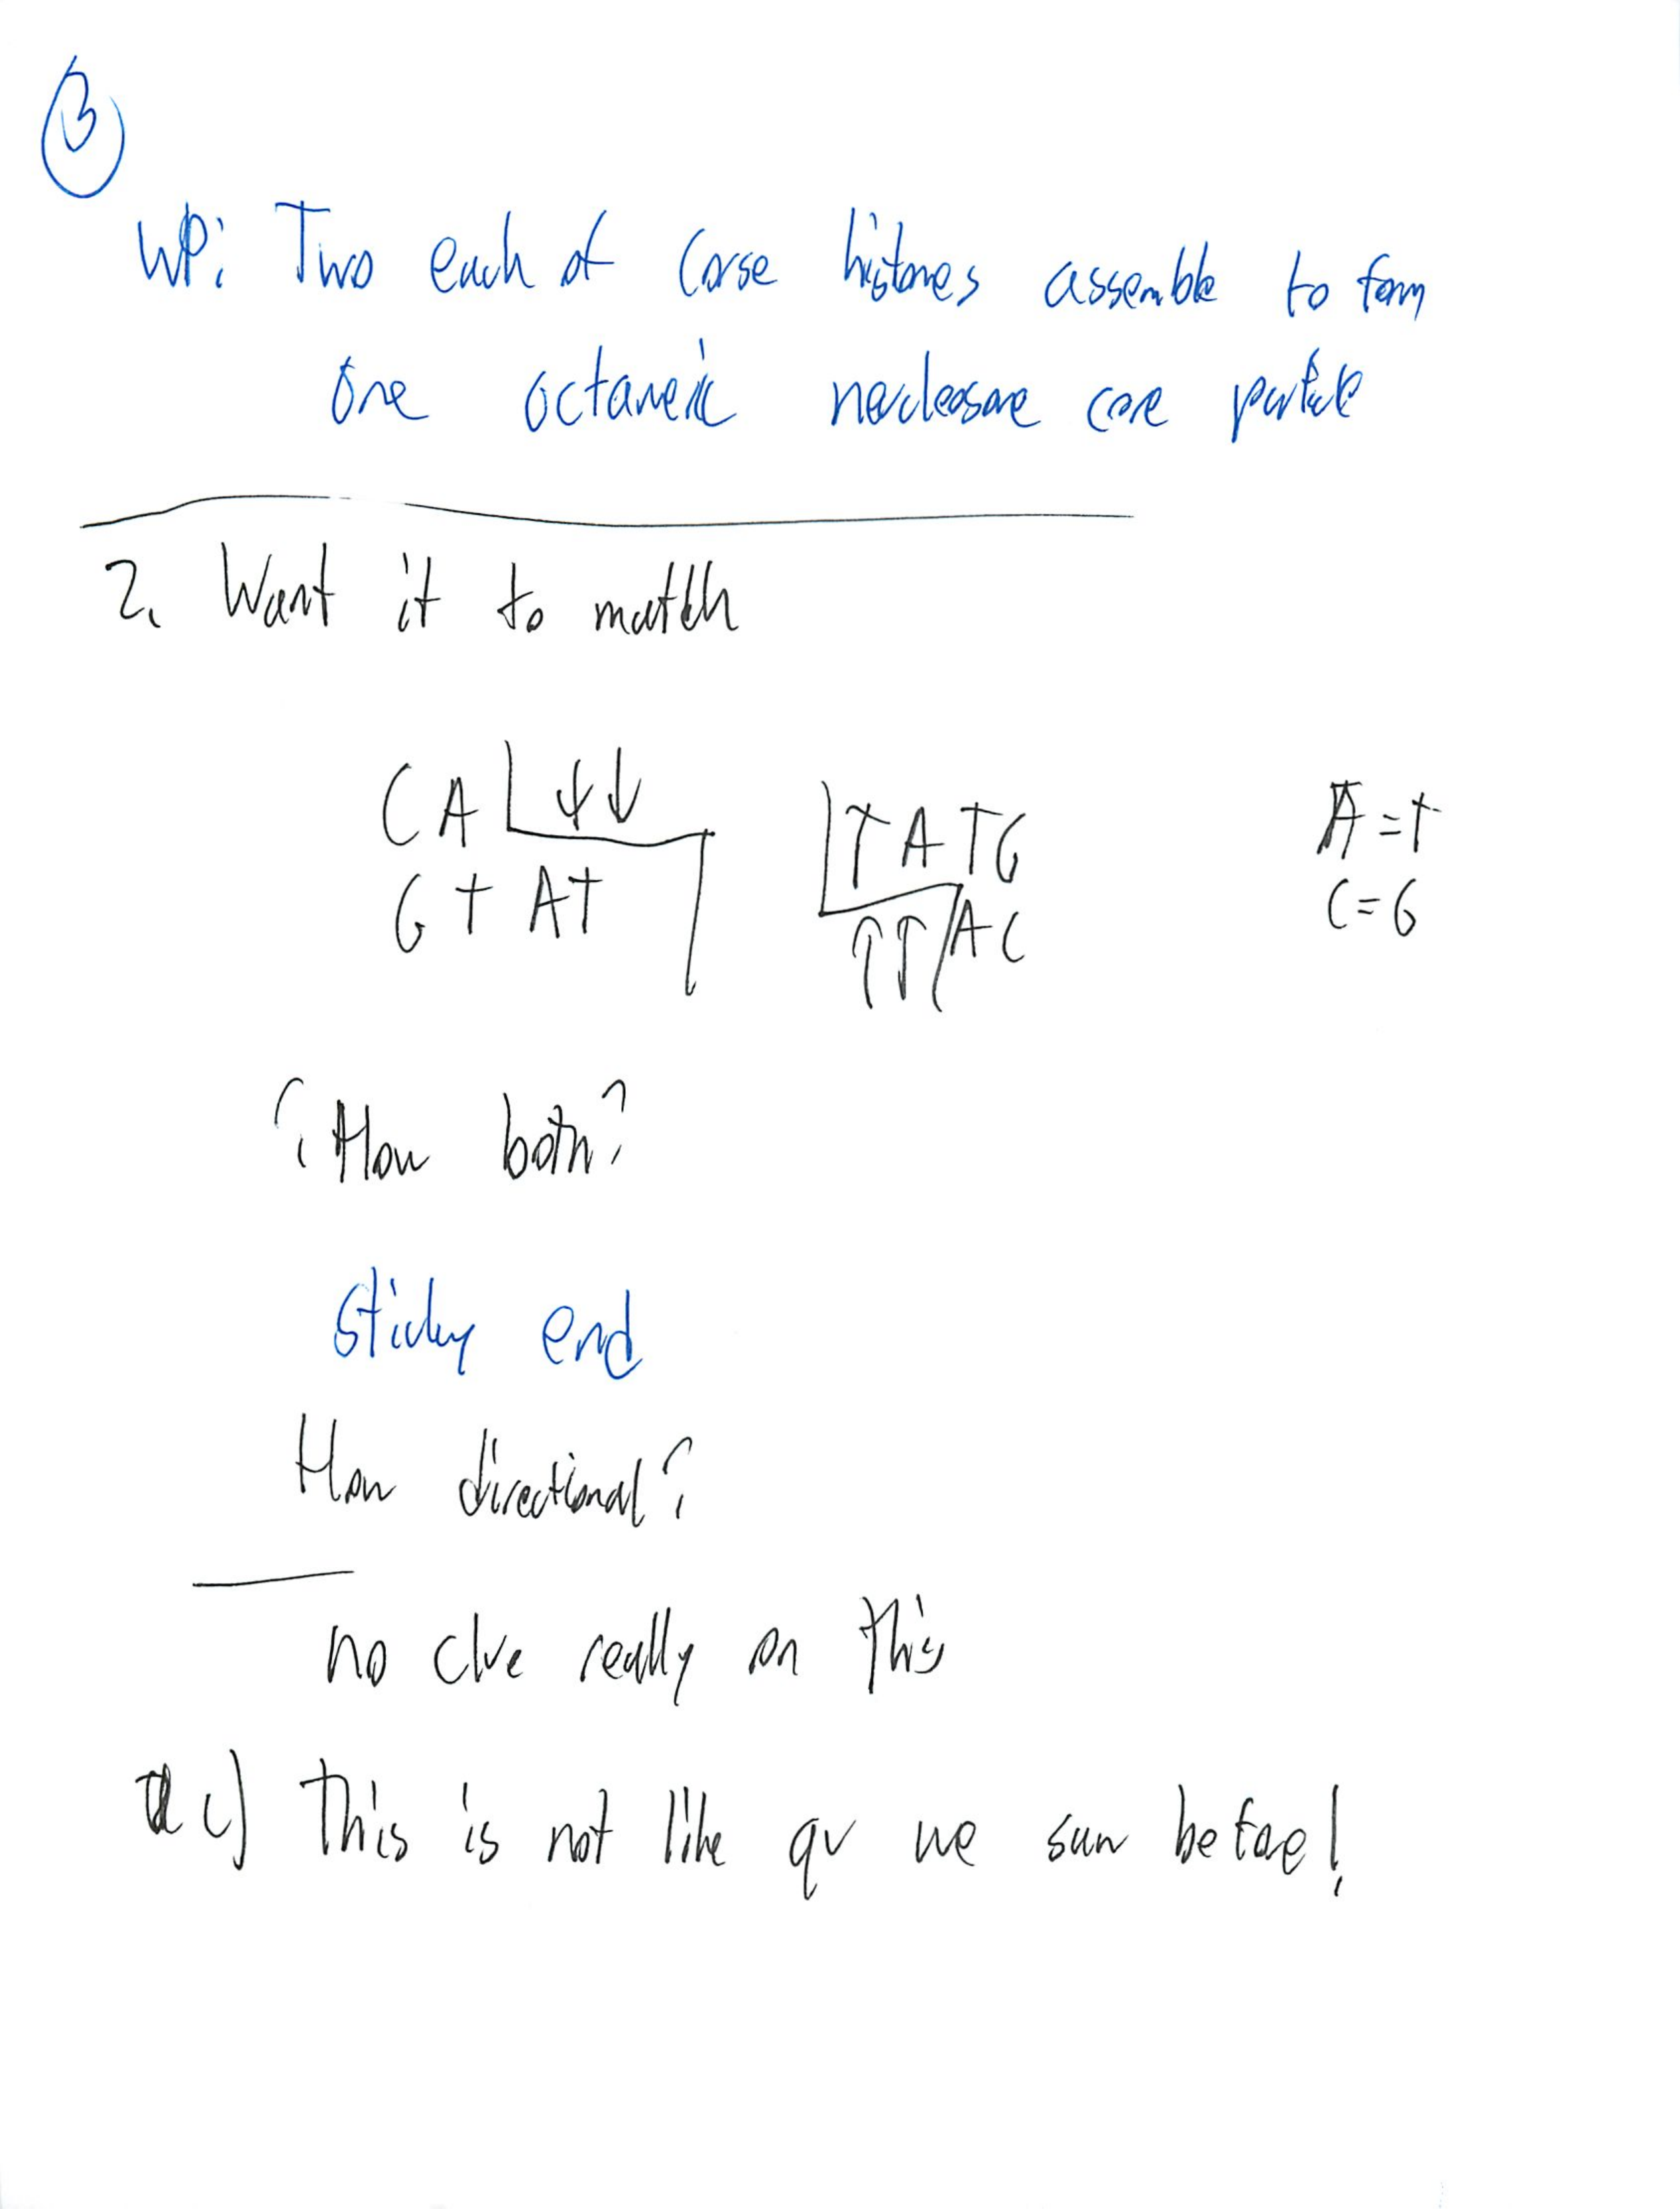 3
WP: Two each of corse histones assemble to form
one octameric necleosome core particle
2. Want it to match
CA ↓↓ TATG A=T
GTAT ↑↑AC C=G
¿How both?
Sticky end
How directional?
no clue really on this
c) This is not like qu we saw before!